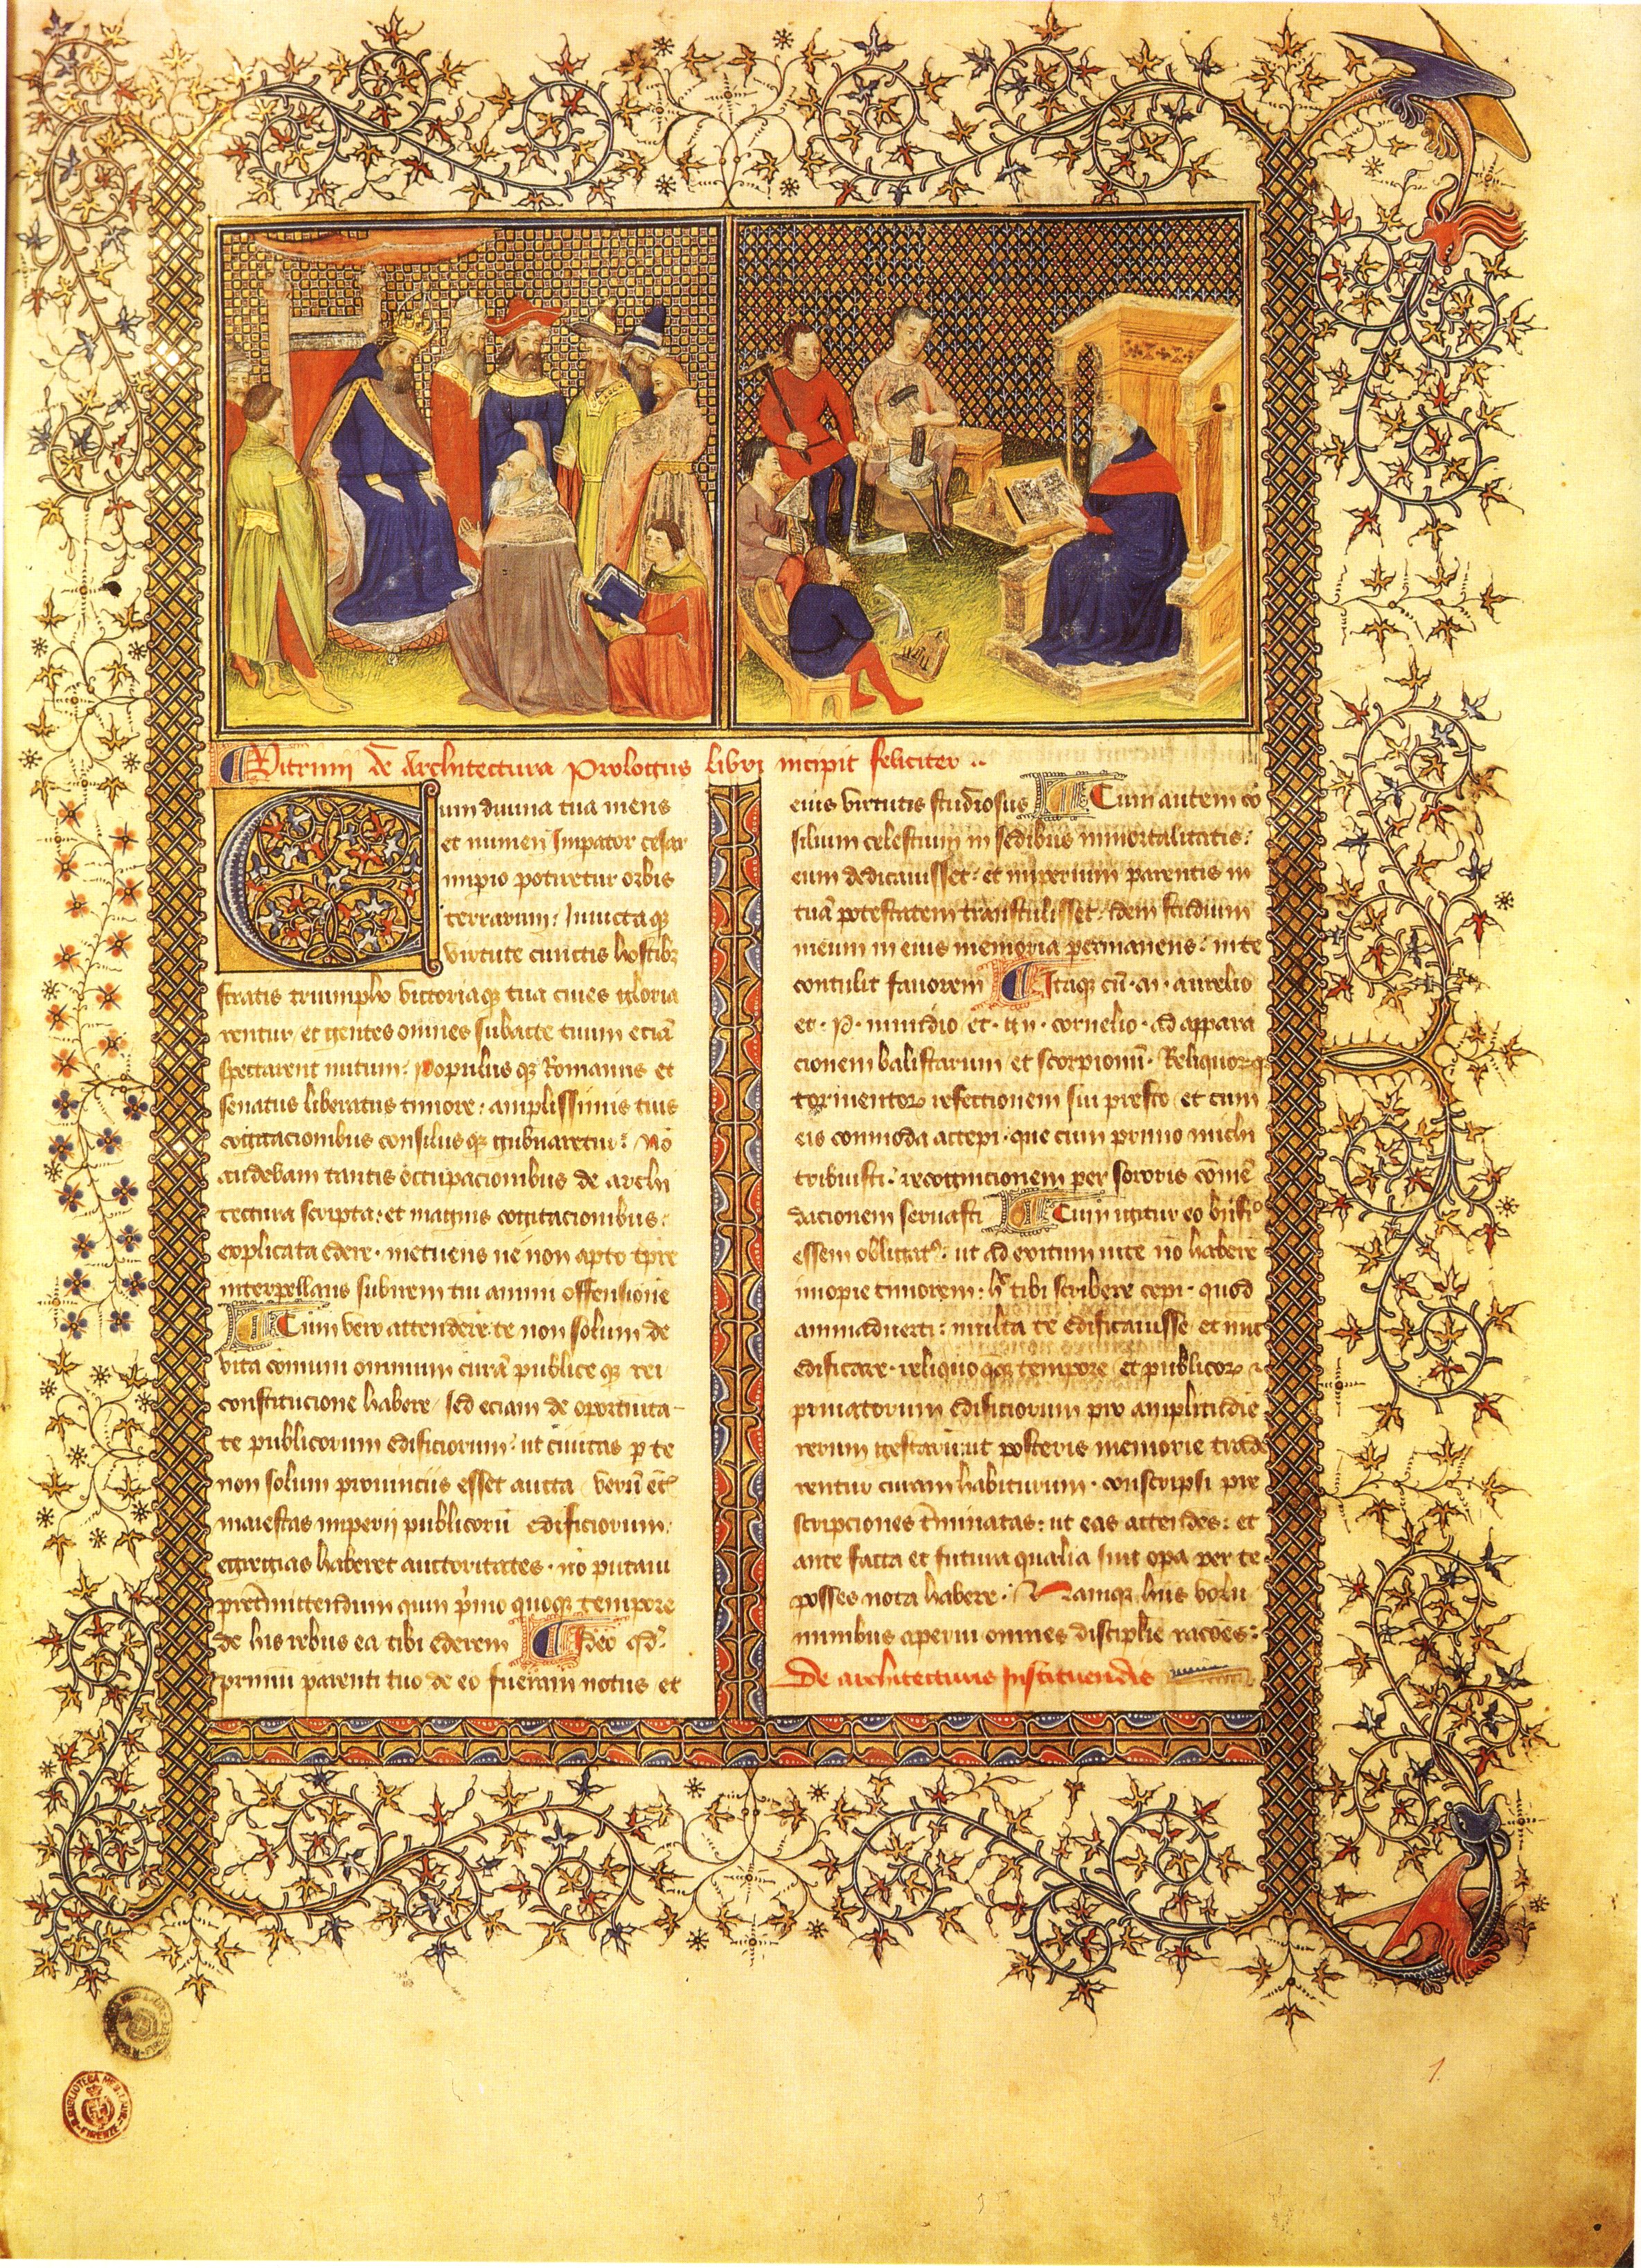 Vitruuii de Architectura Prologus libri incipit feliciter ..
Cum diuina tua mens
et numen Impator cesar
impio potiretur orbis
terrarum: Inuictaqꝫ
virtute cunctis hostibꝫ
stratis triumpho victoriaqꝫ tua ciues gloria
rentur et gentes omnes subacte tuum eciā
spectarent nutum: populus qꝫ Romanus et
senatus liberatus timore: amplissimis tuis
cogitacionibus consiliis qꝫ gubnaretur: Nō
audebam tantis occupacionibus de archi
tectura scripta: et magnis cogitacionibus:
explicata edere · metuens ne non apto tpre
interpellans subirem tui animi offensione
Cum vero attendere te non solum de
vita comuni omnium curā publice qꝫ rei
constitucione habere / sed eciam de oportuita-
te publicorum edificiorum: ut ciuitas ꝑ te
non solum prouinciis esset aucta verū ēt
maiestas imperij publicorū edificiorum:
egregias haberet auctoritates · nō putaui
pretmittendum quin pimo quoqꝫ tempore
de his rebus ea tibi ederem Ideo qd
primū parenti tuo de eo fueram notus et
eius virtutis studiosus Cum autem cō
silium celestium in sedibus inmortalitatis:
eum dedicauisset: et imperium parentis in
tuā potestatem transtulisset: idem studium
meum in eius memoria permanens: in te
contulit fauorem Itaqꝫ cū · m · aurelio
et · p · minidio et · gn · cornelio · ad appara
cionem balistarum et scorpionū · Reliquorꝫqꝫ
tormentorꝫ refectionem fui presto et cum
eis commoda accepi · que cum primo michi
tribuisti: recognicionem per sororis cōmē
dacionem seruasti Cum igitur eo bnfiō
essem obligat9: ut ad exitum uite nō habere
inopie timorem: hͨ tibi scribere cepi · quod
animaduerti: multa te edificauisse et nūc
edificare · reliquo qꝫ tempore et publicorꝫ ⁊
priuatorum edificiorum pro amplitudie
rerum gestarū: ut posteris memorie trade
rentur curam habiturum · conscripsi pre
scripciones tminatas: ut eas attendes: et
ante facta et futura qualia sint opa per te
posses nota habere · Namqꝫ hiis volu
minibus aperui omnes disciplie racōes:
De architecturis Instituendis
BIBLIOTECA MED.
FIRENZE
1.